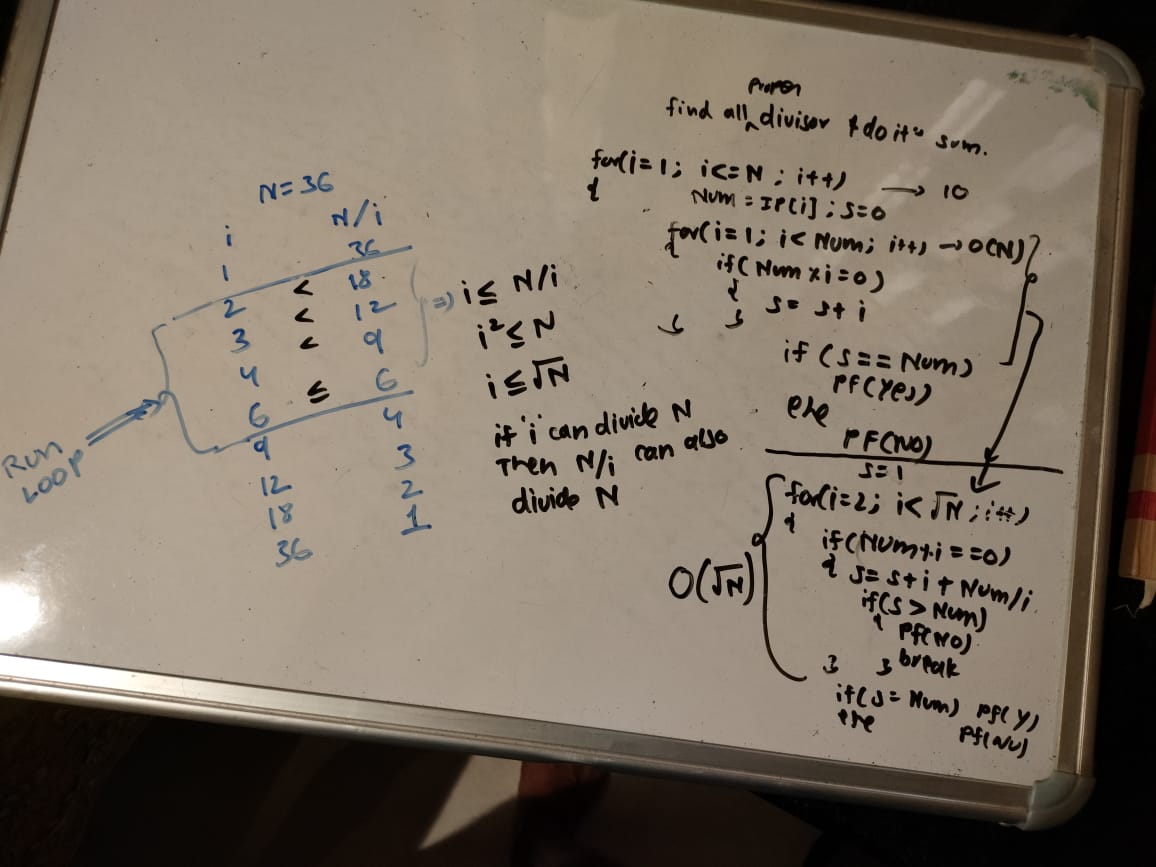 N=36
i N/i
1 36
2 < 18
3 < 12
4 < 9
6 ≤ 6
9 4
12 3
18 2
36 1
RUN
LOOP
=> i ≤ N/i
i² ≤ N
i ≤ √N
if 'i' can divide N
Then N/i can also
divide N
proper
find all ^ divisor & do it's sum.
for(i=1; i<=N; i++) → 10
{ Num = IP[i]; S=0
for(i=1; i< Num; i++) → O(N)
{ if(Num % i=0)
{ S= S+i
} }
if (S== Num)
PF(Yes)
else
PF(NO)
S=1
for(i=2; i< √N; i++)
{ if(Num % i ==0)
{ S= S+i+Num/i
if(S > Num)
{ PF(NO)
} } break
O(√N)
if(S= Num) PF(Y)
else PF(NO)